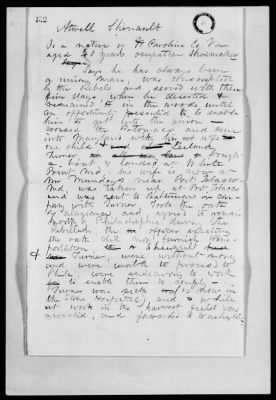 Atwell Shenault
Is a native of Caroline Co Va
aged 28 years occupation Shoemaker
Says he has always been
a union man, was conscripted
by the Rebels and served with them
five days when he deserted &
remained in the woods until
an opportunity presented to enable
him to get into the union
crossed the Potomac and came
into Maryland with his wife
one child and
Turner brought
a boat & landed at White
Point Md, his wife is now at
Mr Mundays near Port Tobacco
Md was taken up at Port Tobacco
and was sent to Baltimore in com-
pany with Turner. Took the oath
of allegiance and agreed to remain
North of Philadelphia during the
rebellion the officer exacting
the oath did not furnish trans-
portation Shenault
& Turner, were without money
and were unable to proceed to
Phila, were endeavoring to work
to enable them to comply
Turner was sick is now in
the Hospital and while
at work in the harvest field was
arrested, and forwarded to Washington